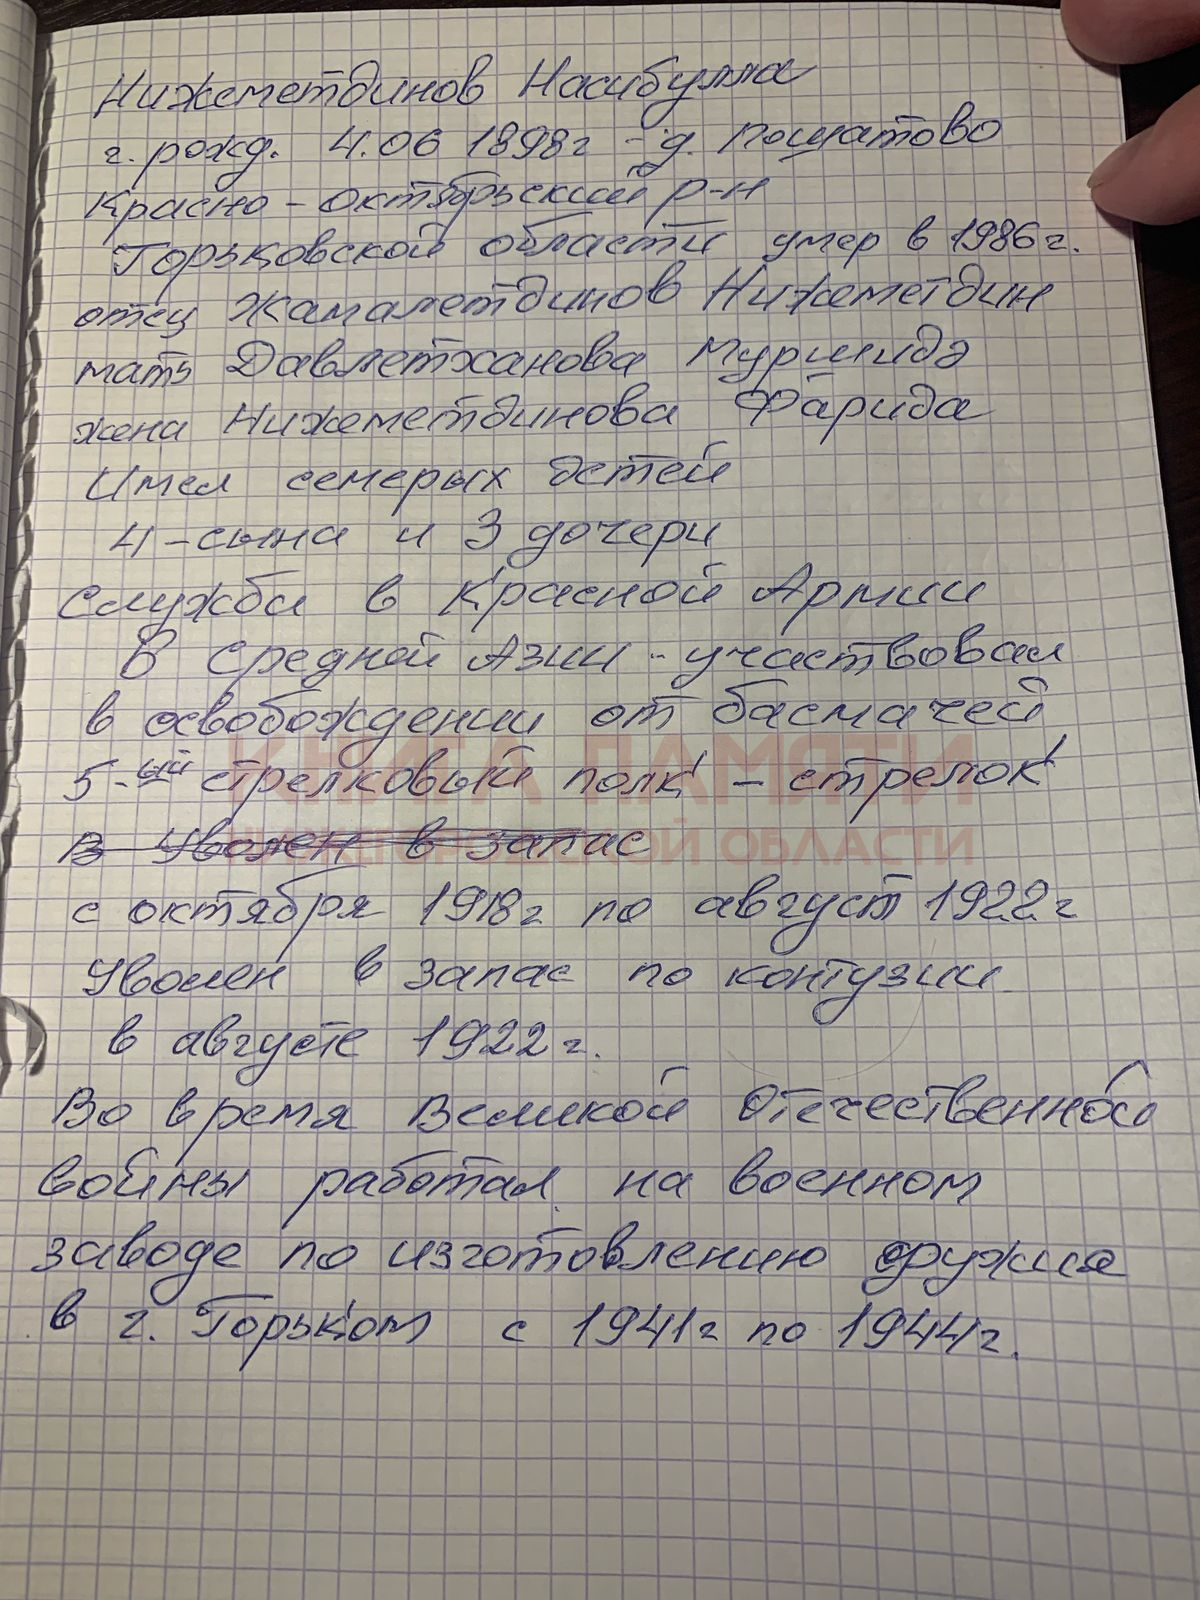 Нижеметдинов Насибулла
г. рожд. 4.06 1898г - д. Пошатово
Красно - Октябрьский р-н
Горьковской области умер в 1986г.
отец Жамалетдинов Нижеметдин
мать Давлетханова Муршидэ
жена Нижеметдинова Фарида
Имел семерых детей
4 - сына и 3 дочери
Служба в Красной Армии
В Средней Азии - участвовал
в освобождении от басмачей
5-ый стрелковый полк - стрелок
КНИГА ПАМЯТИ
В Уволен в запас
НИЖЕГОРОДСКОЙ ОБЛАСТИ
с октября 1918г по август 1922г
Уволен в запас по контузии
в августе 1922г.
Во время Великой Отечественной
войны работал на военном
заводе по изготовлению оружие
в г. Горьком с 1941г по 1944г.